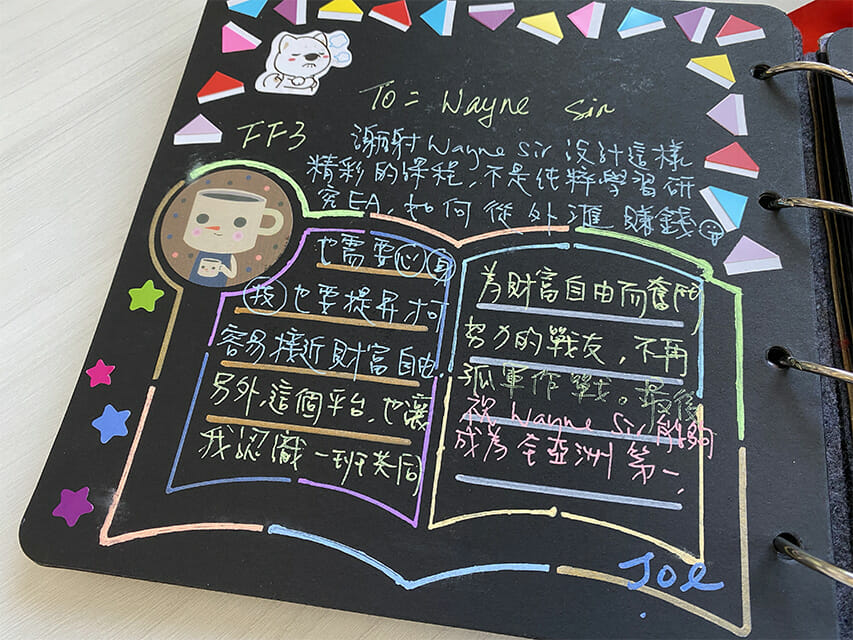 To = Wayne Sir
FF3
謝謝Wayne Sir 設計這樣
精彩的課程,不是純粹學習研
究EA,如何從外匯賺錢
也需要心身
技也要提昇才
容易接近財富自由,
另外,這個平台,也讓
我認識一班共同
為財富自由而奮鬥
努力的戰友,不再
孤軍作戰。最後
祝 Wayne Sir 能夠
成為全亞洲第一,
Joe